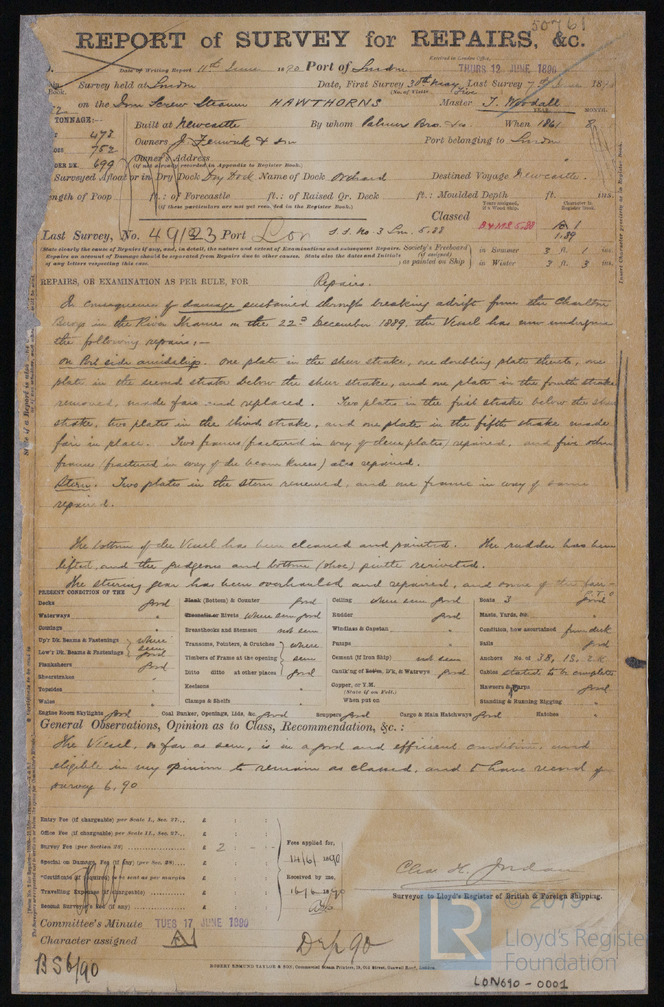 50761
REPORT of SURVEY for REPAIRS, &c.
Date of Writing Report 11th June 1890 Port of London
Received in London Office, THURS 12 JUNE 1890
Survey held at London Date, First Survey 30th May Last Survey 7th June 1890
(No. of Visits Five
on the Iron Screw Steamer HAWTHORNS Master T. Woodall
TONNAGE:— YEAR. MONTH.
478 Built at Newcastle By whom Palmers Bros. & Co. When 1861 8
752 Owners J. Fenwick & Son Port belonging to London
699 Owners' Address
(If not already recorded in Appendix to Register Book.)
Surveyed Afloat or in Dry Dock Dry Dock Name of Dock Orchard Destined Voyage Newcastle
Length of Poop ft.: of Forecastle ft.: of Raised Qr. Deck ft.: Moulded Depth ft. ins.
(If these particulars are not yet recorded in the Register Book.)
Classed
Last Survey, No. 49123 Port Lon S.S. No. 3 Lon. 5.88
B&MS 5.88 A1
1.89
Society's Freeboard (if assigned) as painted on Ship in Summer 3 ft. 1 ins.
in Winter 3 ft. 3 ins.
REPAIRS, OR EXAMINATION AS PER RULE, FOR Repairs.
In consequence of damage sustained through breaking adrift from the Charlton
Buoys in the River Thames on the 22nd December 1889, the Vessel has now undergone
the following repairs;—
On Port side amidships. One plate in the sheer strake, one doubling plate thereto, one
plate in the second strake below the sheer strake, and one plate in the fourth strake
removed, made fair and replaced. Two plates in the first strake below the sheer
strake, two plates in the third strake, and one plate in the fifth strake made
fair in place. Two frames fractured in way of these plates, repaired, and five other
frames (fractured in way of the beam knees) also repaired.
Stern. Two plates in the stern renewed, and one frame in way of same
repaired.
The bottom of the Vessel has been cleaned and painted. The rudder has been
lifted, and the gudgeons and bottom (shoe) pintle rivetted.
The steering gear has been overhauled and repaired, and some of the
P.T.O
PRESENT CONDITION OF THE
Decks good
Waterways "
Coamings "
Up'r Dk. Beams & Fastenings where
Low'r Dk. Beams & Fastenings seen good
Planksheers good
Sheerstrakes "
Topsides "
Wales "
(Bottom) & Counter good
Rivets where seen good
Breasthooks and Stemson not seen
Transoms, Pointers, & Crutches where
Timbers of Frame at the opening seen
Ditto ditto at other places good
Keelsons "
Clamps & Shelfs "
Ceiling where seen good
Rudder good
Windlass & Capstan "
Pumps "
Cement (if Iron Ship) not seen
Caulking of D'k, & Waterwys good
Copper, or Y.M.
(State if on Felt.)
When put on
Boats 3 good
Masts, Yards, &c. "
Condition, how ascertained from deck
Sails good
Anchors No. of 3B, 1S, 2K
Cables stated to be complete
Hawsers & Warps good
Standing & Running Rigging "
Engine Room Skylights good Coal Bunker, Openings, Lids, &c. good Scuppers good Cargo & Main Hatchways good Hatches "
General Observations, Opinion as to Class, Recommendation, &c.:
The Vessel, so far as seen, is in a good and efficient condition, and
eligible in my opinion to remain as classed, and to have record of
survey 6.90
Entry Fee (if chargeable) per Scale I., Sec. 27... £ : :
Office Fee (if chargeable) per Scale II., Sec. 27... £ : :
Survey Fee (per Section 28) £ 2 : :
Special or Damage Fee (if any) (per Sec. 28) £ : :
Certificate (if required) to be sent as per margin £
Travelling Expenses (if chargeable) £
Second Surveyor's Fee (if any) £
Fees applied for,
14/6/1890
Received by me,
16/6/1890
Chas. H. Jordan
Surveyor to Lloyd's Register of British & Foreign Shipping.
Committee's Minute TUES 17 JUNE 1890
Character assigned A1
BS 6/90
ROBERT EDMUND TAYLOR & SON, Commercial Steam Printers, 19, Old Street, Goswell Road, London.
© 2019
LR
Lloyd's Register
Foundation
LON690-0001